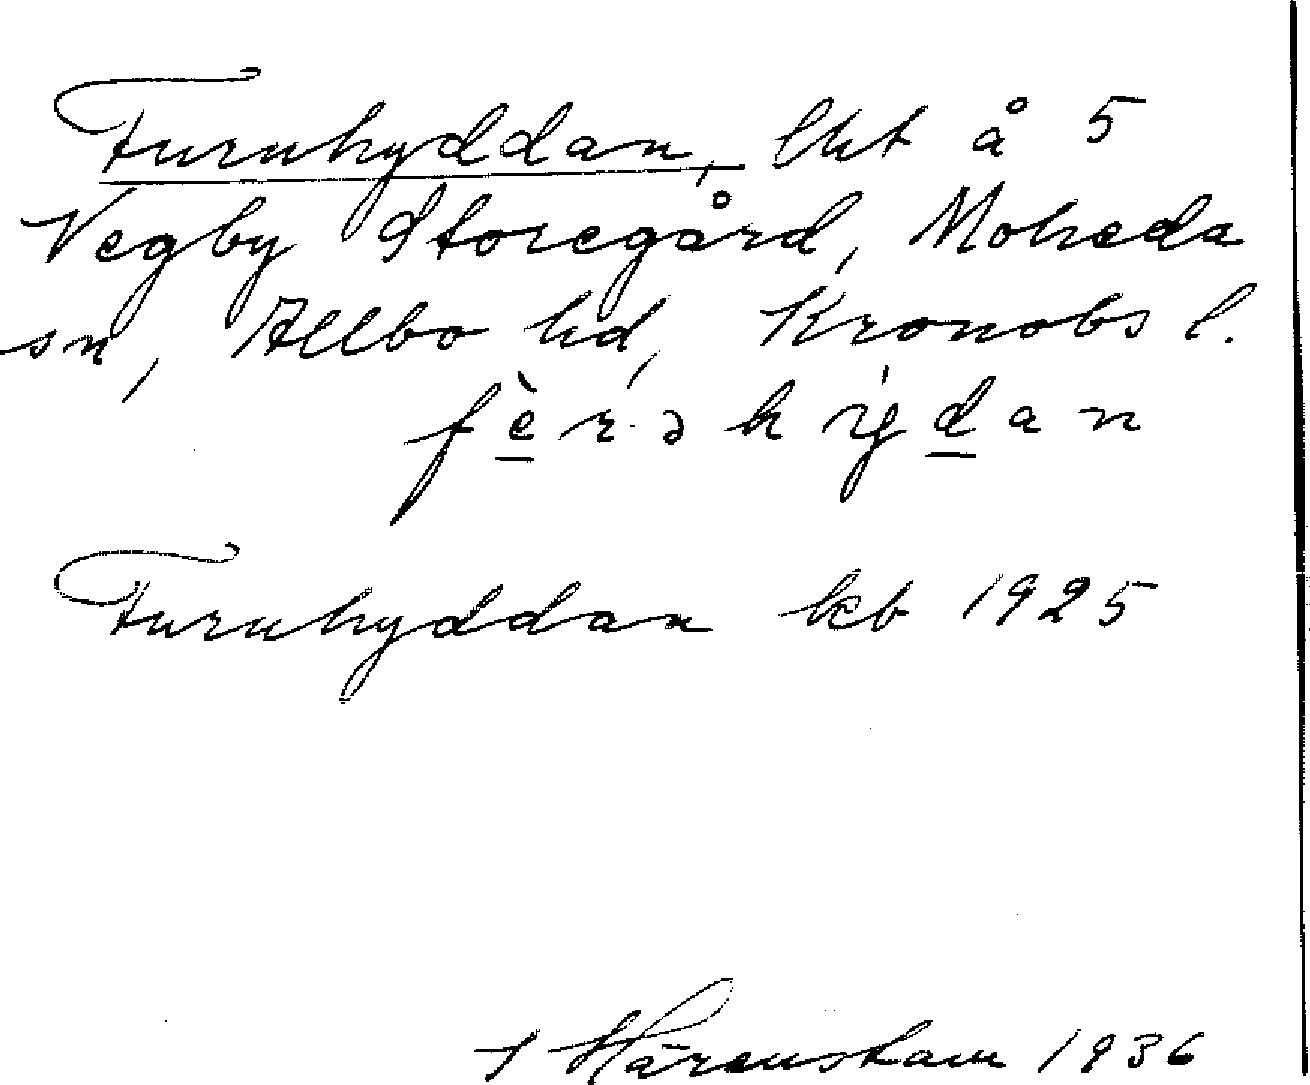 Furuhyddan, lht å 5
Vegby Storegård, Moheda
sn, Allbo hd, Kronobs l.
fèrəhýdan
Furuhyddan kb 1925
Härenstam 1936